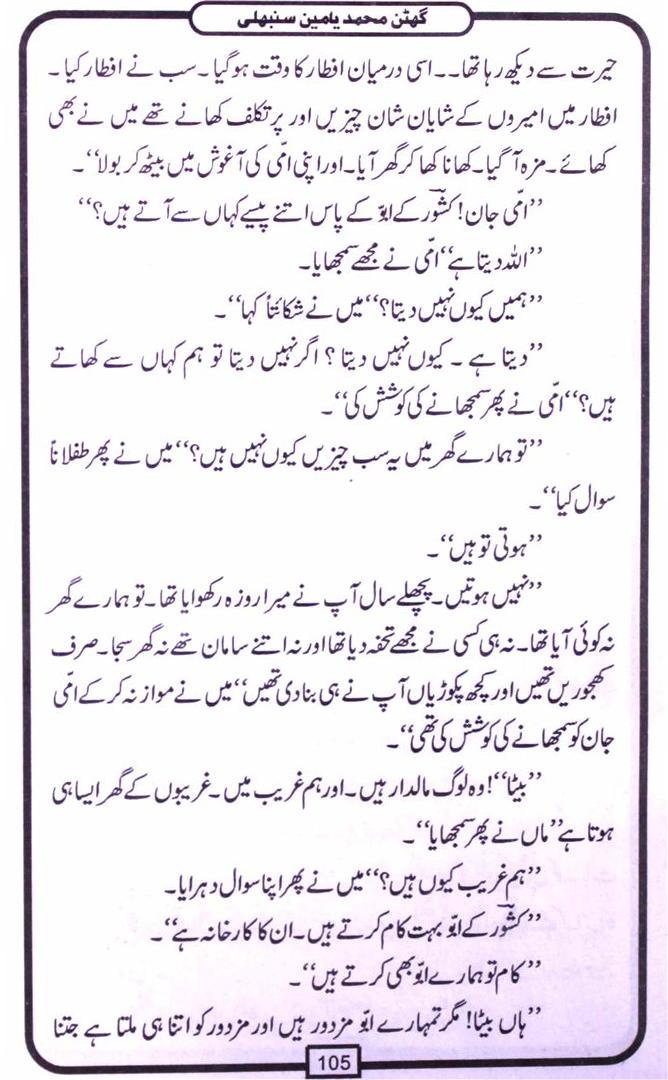 گھٹن محمد یامین سنبھلی
حیرت سے دیکھ رہا تھا۔۔اسی درمیان افطار کا وقت ہوگیا۔سب نے افطار کیا۔
افطار میں امیروں کے شایان شان چیزیں اور پرتکلف کھانے تھے میں نے بھی
کھائے۔مزہ آ گیا۔کھانا کھا کر گھر آیا۔اور اپنی امّی کی آغوش میں بیٹھ کر بولا“۔
”امّی جان! کشور کے ابوّ کے پاس اتنے پیسے کہاں سے آتے ہیں؟“
”اللہ دیتا ہے“امّی نے مجھے سمجھایا۔
”ہمیں کیوں نہیں دیتا؟“میں نے شکائتاً کہا“۔
”دیتا ہے ۔ کیوں نہیں دیتا ؟ اگر نہیں دیتا تو ہم کہاں سے کھاتے
ہیں؟“امّی نے پھر سمجھانے کی کوشش کی“۔
”تو ہمارے گھر میں یہ سب چیزیں کیوں نہیں ہیں؟“میں نے پھر طفلاناً
سوال کیا“۔
”ہوتی تو ہیں“۔
”نہیں ہوتیں۔پچھلے سال آپ نے میرا روزہ رکھوایا تھا۔تو ہمارے گھر
نہ کوئی آیا تھا۔نہ ہی کسی نے مجھے تحفہ دیا تھا اور نہ اتنے سامان تھے نہ گھر سجا۔صرف
کھجوریں تھیں اور کچھ پکوڑیاں آپ نے ہی بنادی تھیں“میں نے موازنہ کر کے امّی
جان کو سمجھانے کی کوشش کی تھی“۔
”بیٹا“!وہ لوگ مالدار ہیں۔اور ہم غریب میں۔غریبوں کے گھر ایسا ہی
ہوتا ہے”ماں نے پھر سمجھایا“۔
”ہم غریب کیوں ہیں؟“میں نے پھر اپنا سوال دہرایا۔
”کشور کے ابوّ بہت کام کرتے ہیں۔ان کا کارخانہ ہے“۔
”کام تو ہمارے ابوّ بھی کرتے ہیں“۔
”ہاں بیٹا! مگر تمہارے ابوّ مزدور ہیں اور مزدور کو اتنا ہی ملتا ہے جتنا
105